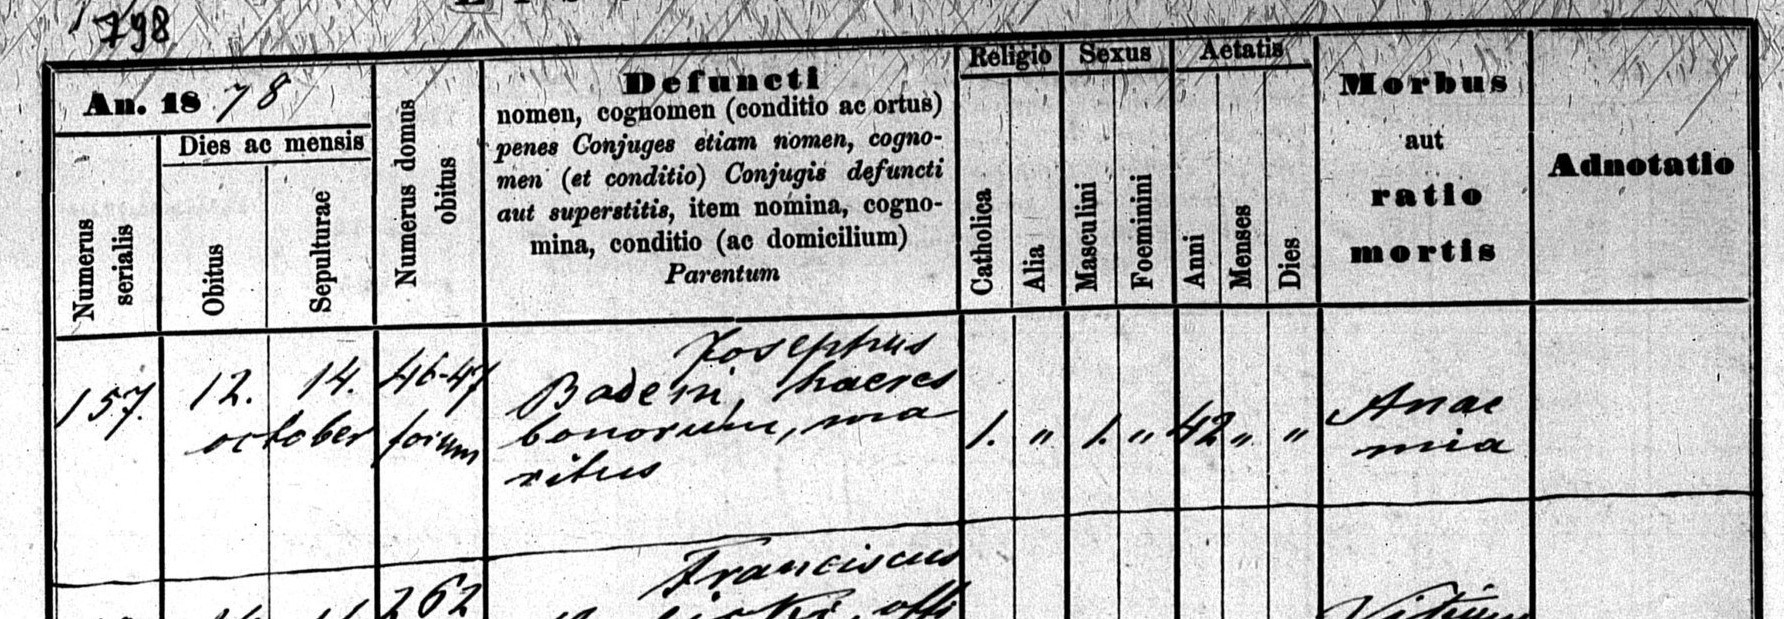 798
An. 1878
Numerus serialis
Dies ac mensis
Obitus
Sepulturae
Numerus domus obitus
Defuncti
nomen, cognomen (conditio ac ortus)
penes Conjuges etiam nomen, cogno-
men (et conditio) Conjugis defuncti
aut superstitis, item nomina, cogno-
mina, conditio (ac domicilium)
Parentum
Religio
Catholica
Alia
Sexus
Masculini
Foeminini
Aetatis
Anni
Menses
Dies
Morbus
aut
ratio
mortis
Adnotatio
157.
12. 14.
october
46-47
forum
Josephus
Badeni, haeres
bonorum, ma
ritus
1. " 1. " 42 " "
Anae
mia
262
Franciscus
offi
Vitium